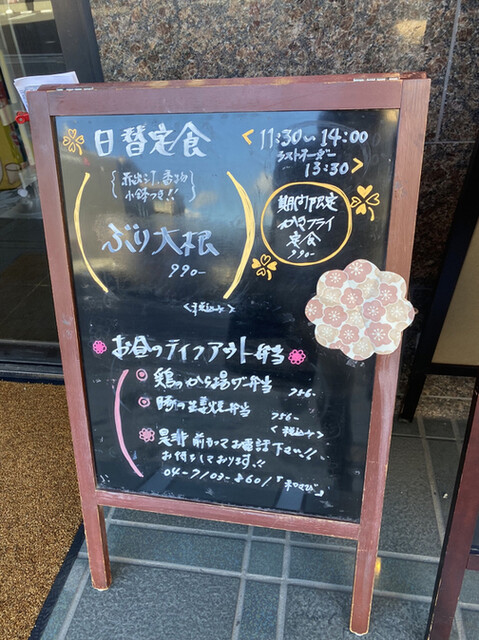 日替定食
<11:30〜14:00
ラストオーダー
13:30>
小鉢つき!!
ぶり大根
990-
<税込み>
期間限定
かきフライ
定食
990-
お昼のテイクアウト弁当
鶏のから揚げ弁当
756-
豚の生姜焼弁当
756-
<税込み>
是非前かってお電話下さい!!
お待ちしております!!